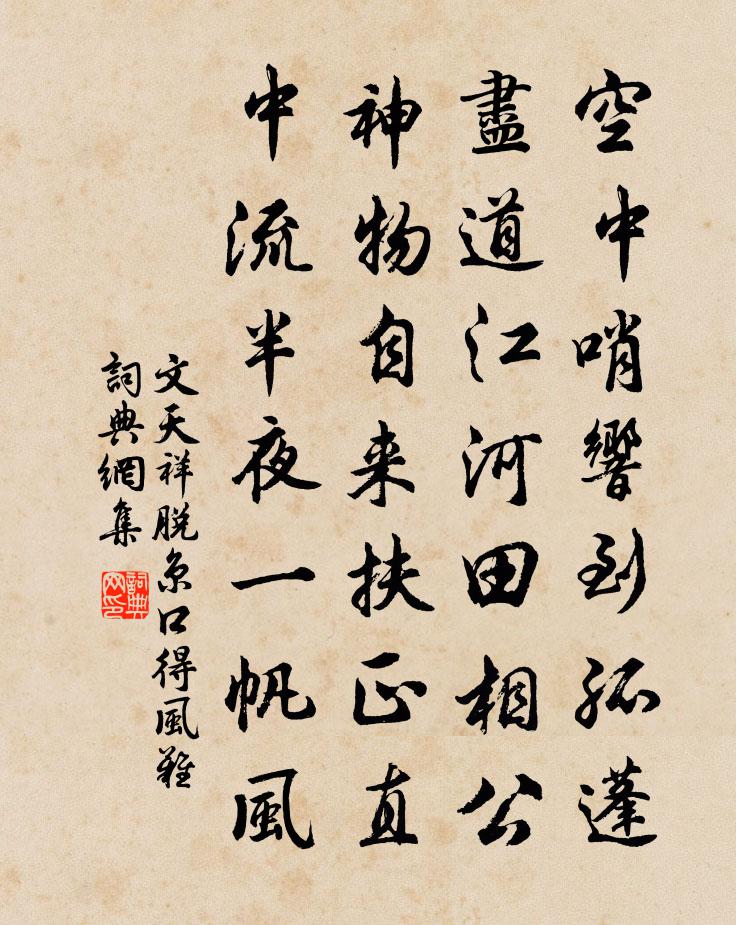 空中哨響到孤蓬
盡道江河田相公
神物自来扶正直
中流半夜一帆風
文天祥脱京口得風難
詞典網集
詞典
网印